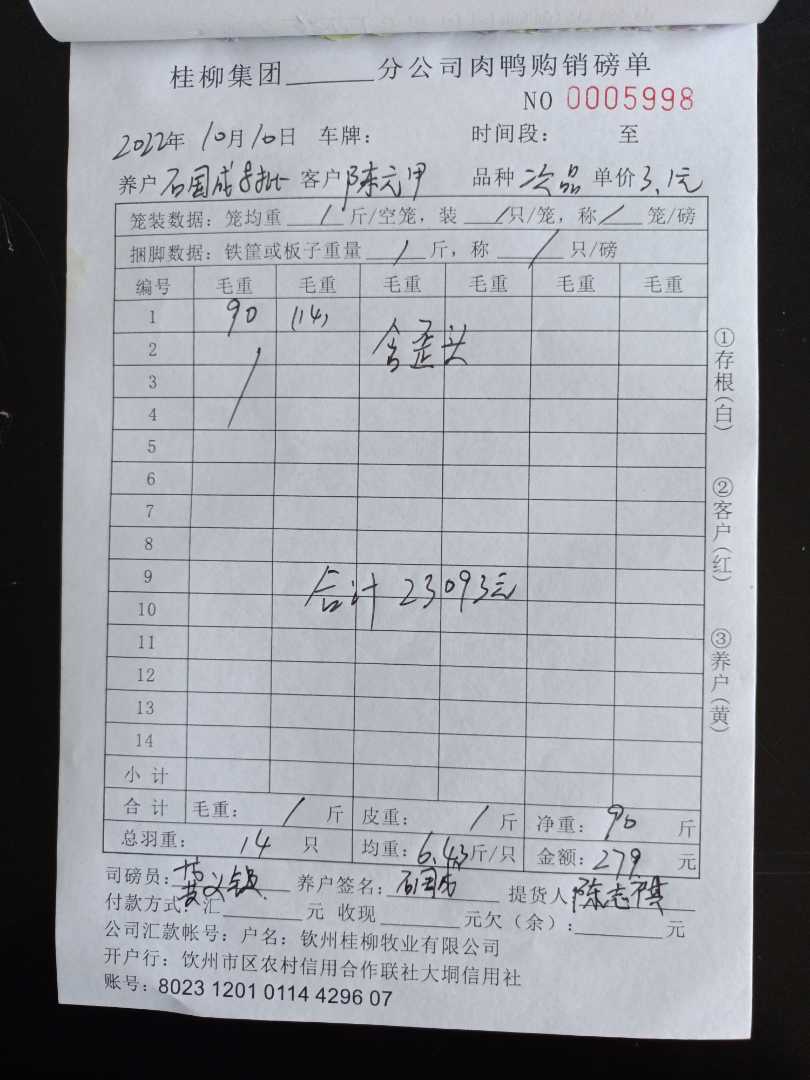 桂柳集团______分公司肉鸭购销磅单
NO 0005998
2022年 10月10日 车牌： 时间段： 至
养户 石国成8批 客户 陈元甲 品种 次品 单价 3.1元
笼装数据：笼均重 / 斤/空笼，装 / 只/笼，称 / 笼/磅
捆脚数据：铁筐或板子重量 / 斤，称 / 只/磅
编号 毛重 毛重 毛重 毛重 毛重 毛重
1 90 (14)
2 含歪头
3
4
5
6
7
8
9 合计 23093元
10
11
12
13
14
小 计
合 计 毛重： / 斤 皮重： / 斤 净重： 90 斤
总羽重： 14 只 均重： 6.43 斤/只 金额： 279 元
司磅员： 养户签名： 石国成 提货人 陈志祺
付款方式：汇______元 收现______元欠（余）：______元
公司汇款帐号：户名：钦州桂柳牧业有限公司
开户行：钦州市区农村信用合作联社大垌信用社
账号：8023 1201 0114 4296 07
①存根（白）
②客户（红）
③养户（黄）